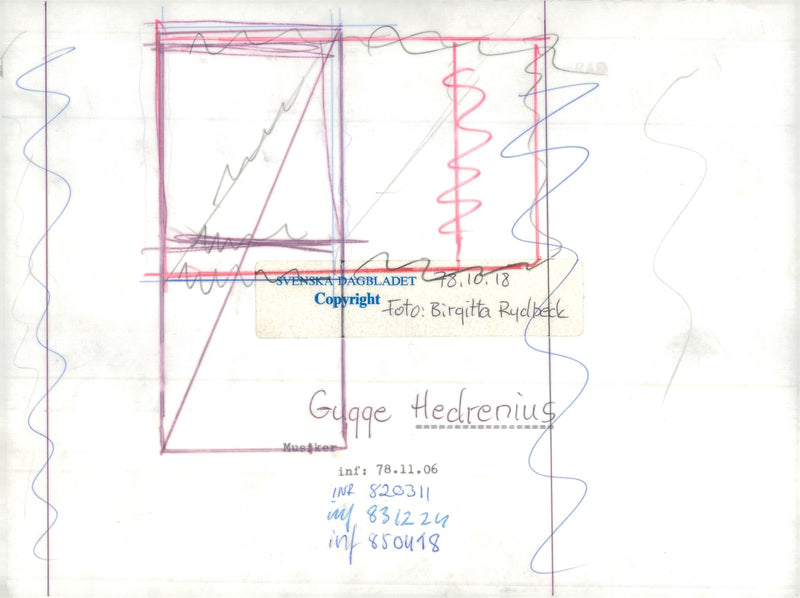 RAD
SVENSKA DAGBLADET 78.10.18
Copyright
Foto: Birgitta Rydbeck
Gugge Hedrenius
Musiker
inf: 78.11.06
INF 820311
inf 831224
inf 850418